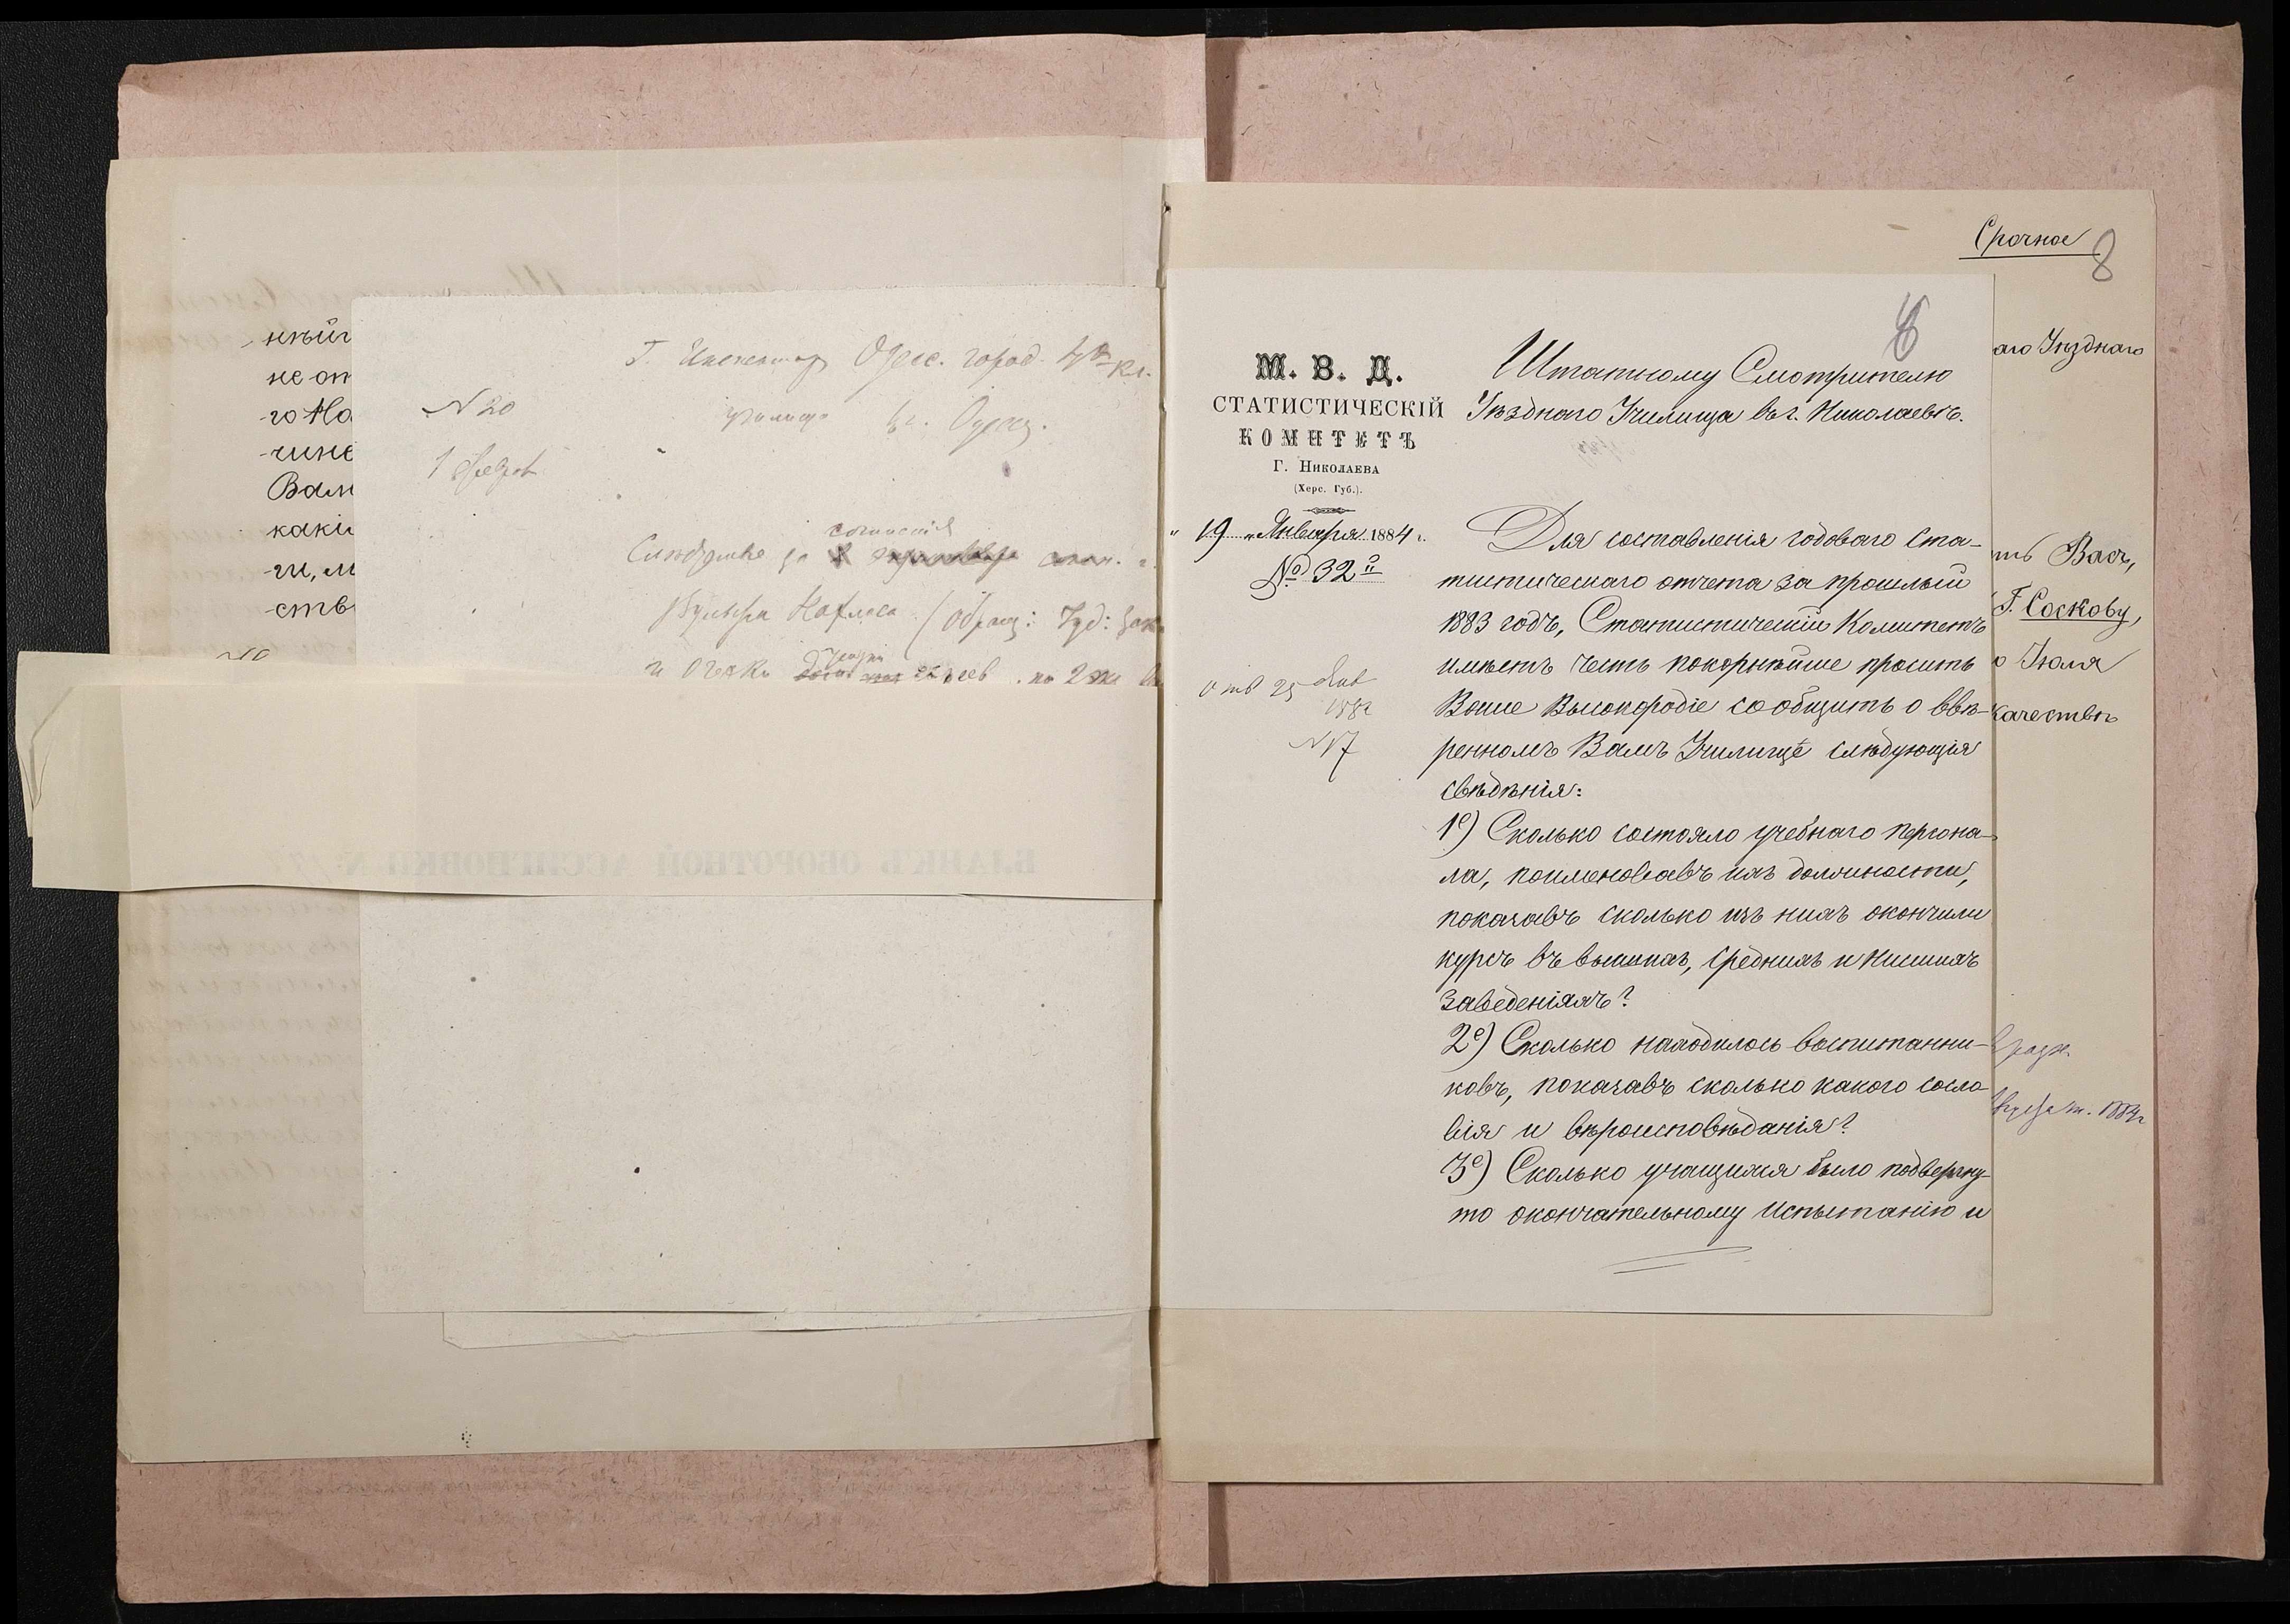 нѣйш
не от
-го На
-чине
Вам
каки
-ги, м
-ств
Г. Инспектору Одес. город. 4 кл.
№ 20
училища в г. Одессу.
1 Февр
сочиненія
Слѣдуемые за
и Очерки
М. В. Д.
СТАТИСТИЧЕСКІЙ
КОМИТЕТЪ
Г. Николаева
(Херс. Губ.).
„ 19 „ Января 1884 г.
№ 32й
отв 25 Янв
188
№ 17
6
Штатному Смотрителю
Уѣзднаго Училища въ г. Николаевѣ.
Для составленія годоваго Ста-
тистическаго отчета за прошлый
1883 годъ, Статистическій Комитетъ
имѣетъ честь покорнѣйше просить
Ваше Высокородіе сообщить о ввѣ-
ренномъ Вамъ Училищѣ слѣдующія
свѣдѣнія:
1е) Сколько состояло учебнаго персона-
ла, поименовавъ ихъ должности,
показавъ сколько изъ нихъ окончили
курсъ въ высшихъ, среднихъ и низшихъ
заведеніяхъ?
2е) Сколько находилось воспитанни-
ковъ, показавъ сколько какого сосло-
вія и вѣроисповѣданія?
3е) Сколько учащихся было подвергну-
то окончательному испытанію и
Срочное
8
аго Уѣзднаго
ть Васъ,
Г. Соскову,
о Іюля
качествѣ
1884 г
БЛАНКЪ ОБОРОТНОЙ АССИГНОВКИ №